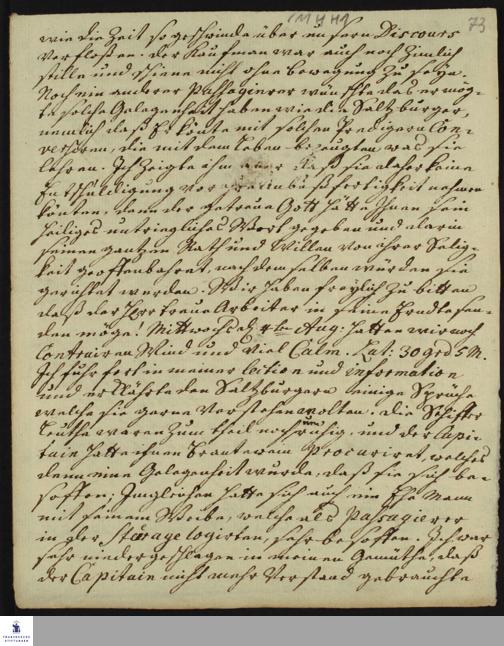 73
wie die Zeit so geschwinde über unsern Discours
verfloßen. der Kaufman war auch noch Zimlich
stille und schiene nicht ohne bewegung zu seyn.
Noch ein anderer Passagierer wünschte das er mög-
te solche Gelegenheit haben wie die Saltzburger,
nemlich daß Er könte mit solchen Predigern Con-
versiren, die mit dem Leben bezeugten, was sie
lehren. Ich Zeigte ihm daß sie daher keine
Entschuldigung vor nehmen
könten, denn der getreue Gott hätte Ihnen sein
heiliges untriegliches Wort gegeben und darin
seinen gantzen Rath und Willen von ihrer Selig-
keit geoffenbahret, nach dem selben würden sie
gerichtet werden. Wir haben freylich zu bitten
daß der Herr treue Arbeiter in seine Erndte sen-
den möge. Mittwochs d. 4ten Aug: hatten wir noch
Contrairen Wind und viel Calm. Lat: 30 grd 5 M.
Ich fuhr fort in meiner Lection und information
und erklährte den Saltzburgern einige Sprüche
welche sie gerne verstehen wolten. Die Schiffer
Leuthe waren zum theil noch unruhig, und der Capi-
tain hatte ihnen brantewein Procuriret, welches
denn eine Gelegenheit wurde, daß sie sich be-
soffen, Imgleichen hatte sich auch ein Ehe Mann
mit seinem Weibe, welche als Passagierer
in der Stearage logirten, sehr besoffen. Ich war
sehr niedergeschlagen in meinen Gemüthe, daß
der Capitain nicht mehr Verstand gebrauchte
FRANCKESCHE
STIFTUNGEN